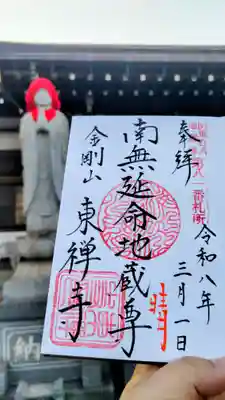 奉拝
二番札所
令和八年
三月一日
南無延命地蔵尊
晴
金剛山
東禅寺
納